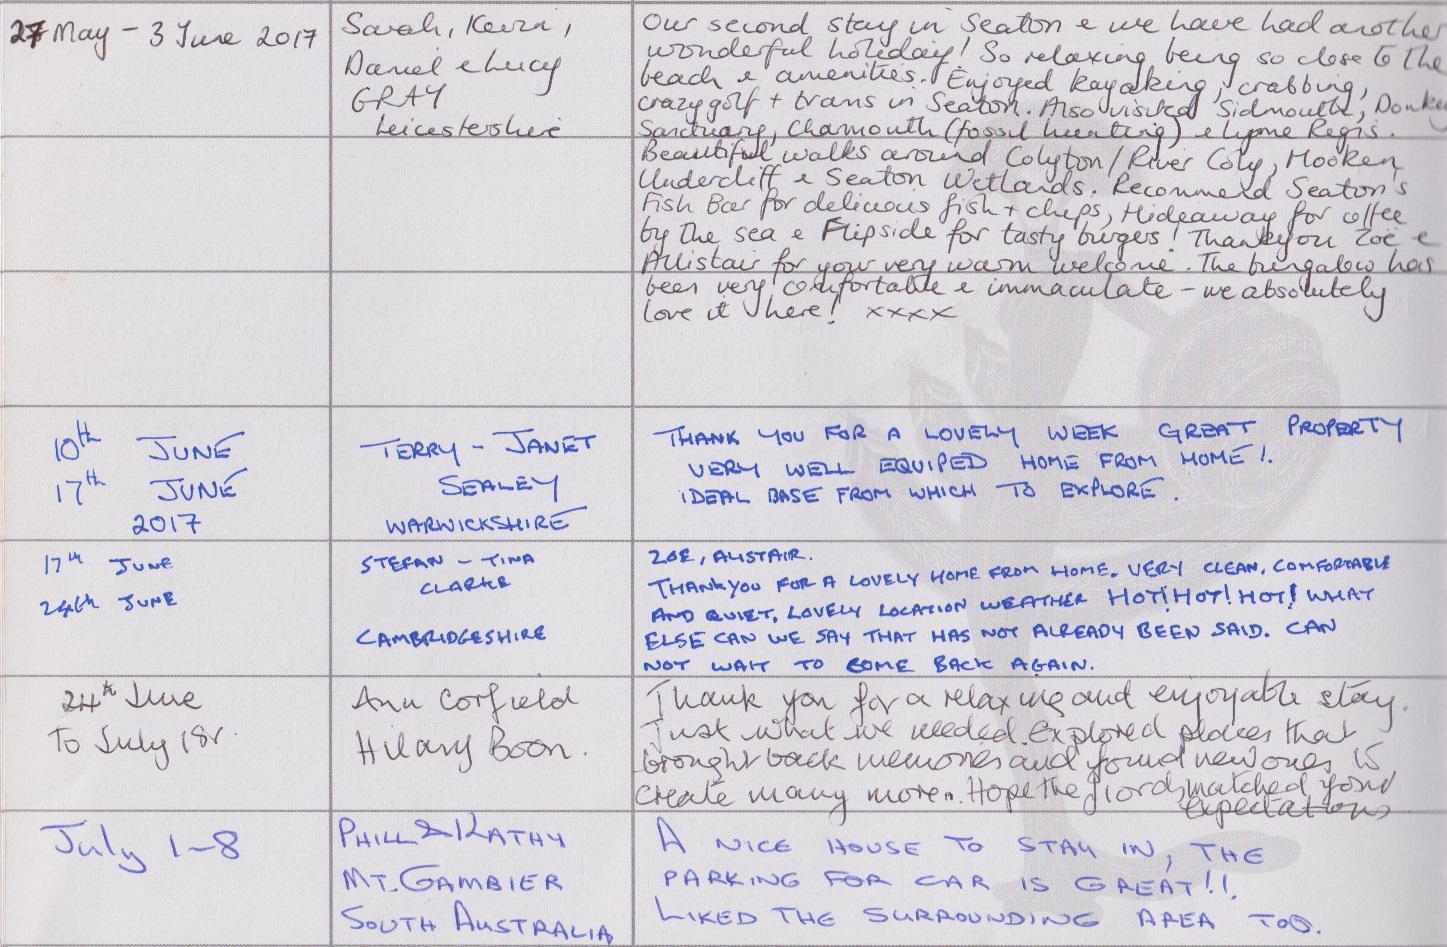 27 May - 3 June 2017
Sarah, Keira,
Daniel & Lucy
GRAY
Leicestershire
Our second stay in Seaton & we have had another
wonderful holiday! So relaxing being so close to the
beach & amenities. Enjoyed kayaking, crabbing,
crazy golf + trams in Seaton. Also visited Sidmouth, Donkey
Sanctuary, Charmouth (fossil hunting) & Lyme Regis.
Beautiful walks around Colyton/River Coly, Hooken
Undercliff & Seaton Wetlands. Recommend Seaton's
Fish Bar for delicious fish + chips, Hideaway for coffee
by the sea & Flipside for tasty burgers! Thankyou Zoë &
Allistair for your very warm welcome. The bungalow has
been very comfortable & immaculate - we absolutely
love it here! xxxx
10th JUNE
17th JUNE
2017
TERRY - JANET
SEALEY
WARWICKSHIRE
THANK YOU FOR A LOVELY WEEK GREAT PROPERTY
VERY WELL EQUIPED HOME FROM HOME!.
IDEAL BASE FROM WHICH TO EXPLORE.
17th JUNE
24th JUNE
STEFAN - TINA
CLARKE
CAMBRIDGESHIRE
ZOE, ALISTAIR.
THANKYOU FOR A LOVELY HOME FROM HOME. VERY CLEAN, COMFORTABLE
AND QUIET, LOVELY LOCATION WEATHER HOT! HOT! HOT! WHAT
ELSE CAN WE SAY THAT HAS NOT ALREADY BEEN SAID. CAN
NOT WAIT TO COME BACK AGAIN.
24th June
To July 1st.
Ann Corfield
Hilary Boon.
Thank you for a relaxing and enjoyable stay.
Just what we needed. Explored places that
brought back memories and found new ones to
create many more. Hope the fiord matched your
expectations
July 1-8
PHILL & KATHY
MT. GAMBIER
SOUTH AUSTRALIA
A NICE HOUSE TO STAY IN, THE
PARKING FOR CAR IS GREAT!!.
LIKED THE SURROUNDING AREA TOO.